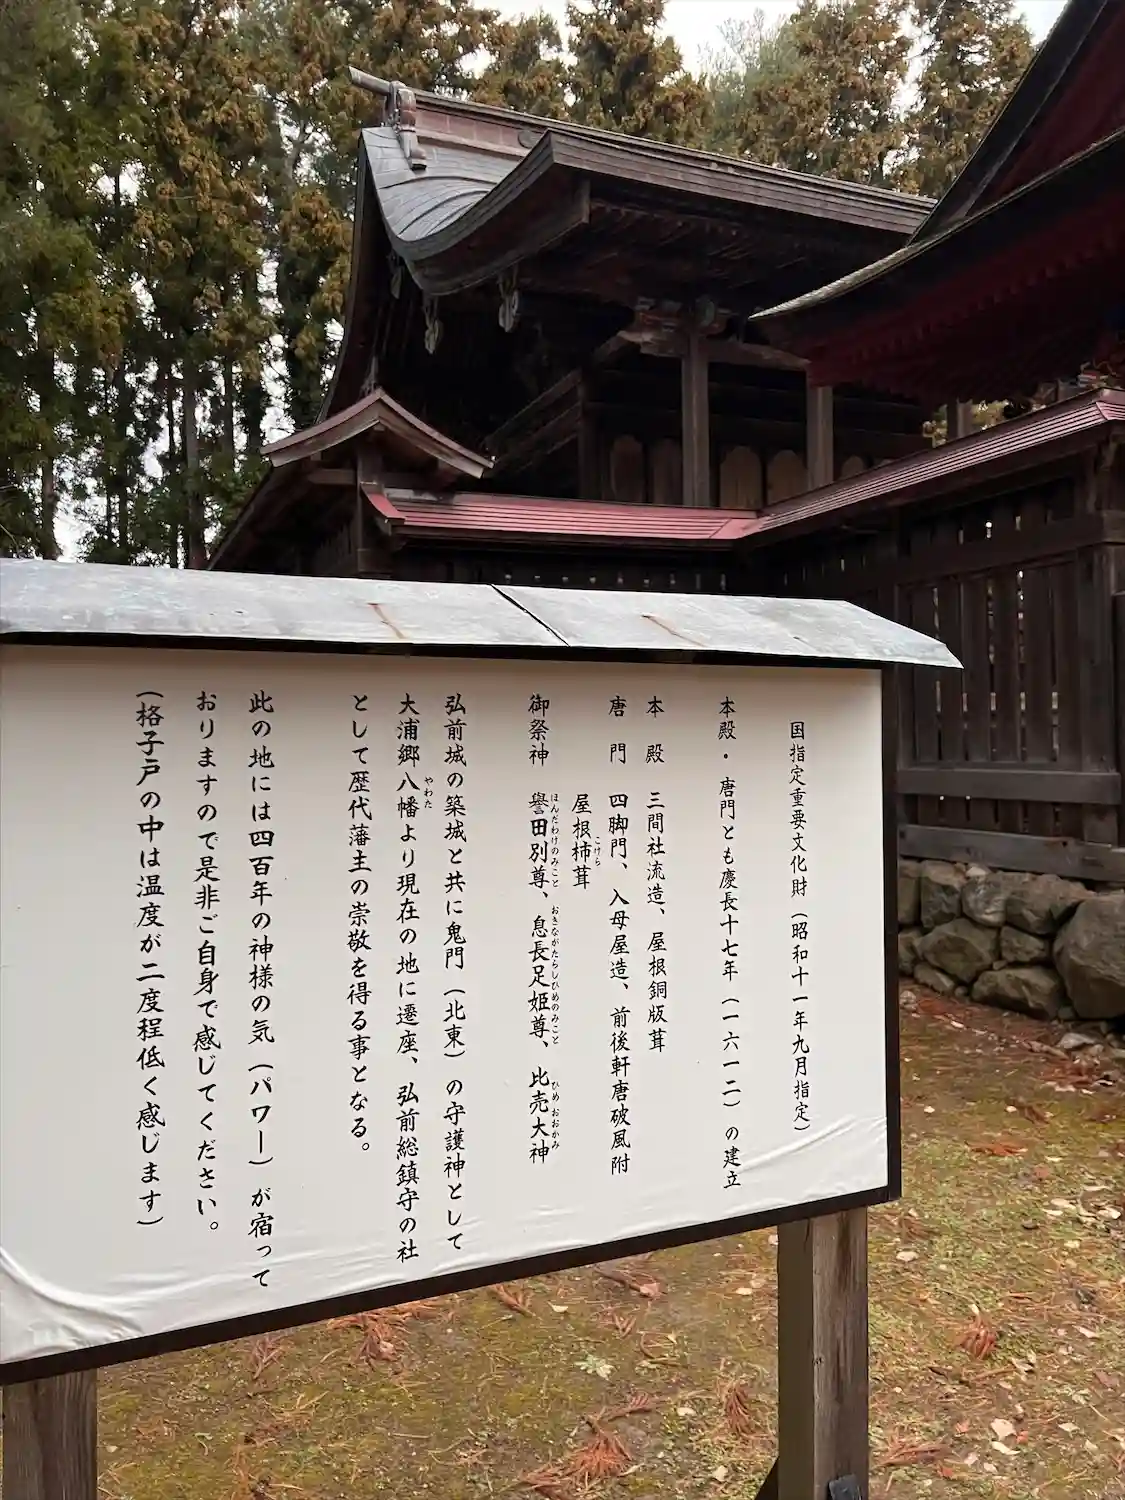 国指定重要文化財（昭和十一年九月指定）
本殿・唐門とも慶長十七年（一六一二）の建立
本　殿　三間社流造、屋根銅版葺
唐　門　四脚門、入母屋造、前後軒唐破風附
屋根柿葺
こけら
御祭神　譽田別尊、息長足姫尊、比売大神
ほんだわけのみこと　おきながたらしひめのみこと　ひめおおかみ
弘前城の築城と共に鬼門（北東）の守護神として
大浦郷八幡より現在の地に遷座、弘前総鎮守の社
やわた
として歴代藩主の崇敬を得る事となる。
此の地には四百年の神様の気（パワー）が宿って
おりますので是非ご自身で感じてください。
（格子戸の中は温度が二度程低く感じます）